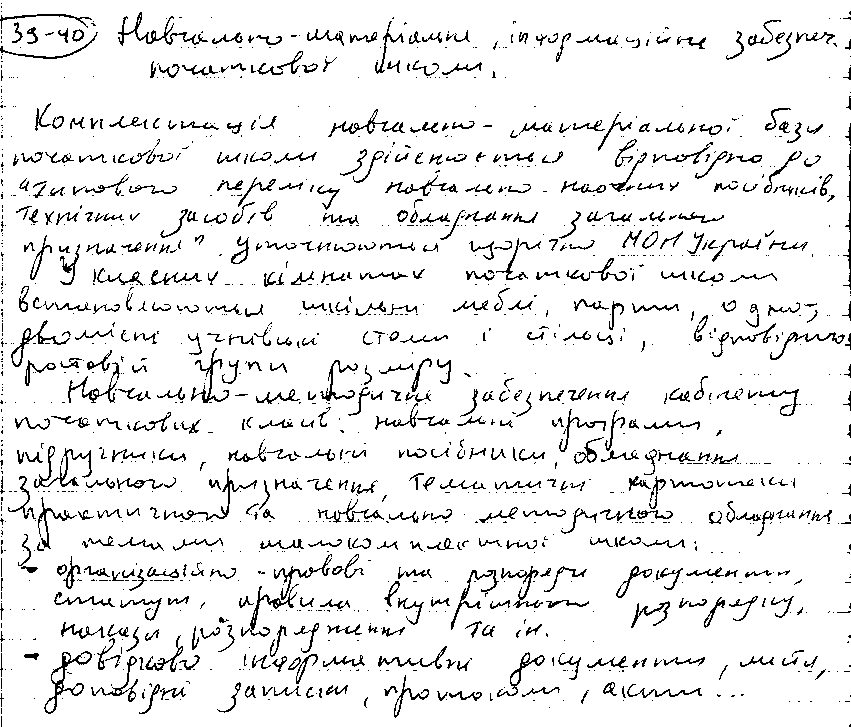 39-40 Навчально-матеріальне, інформаційне забезпеч.
початкової школи.
Комплектація навчально-матеріальної бази
початкової школи здійснюється відповідно до
"Типового переліку навчально-наочних посібників,
технічних засобів та обладнання загального
призначення" уточнюються щорічно МОН України
У класних кімнатах початкової школи
встановлюються шкільні меблі, парти, одно-,
двомісні учнівські столи і стільці, відповідного
ростовій групи розміру.
Навчально-методичне забезпечення кабінету
початкових класів: навчальні програми,
підручники, навчальні посібники, обладнання
загального призначення, тематичні картотеки
практичного та навчально методичного обладнання
за темами малокомплектної школи:
- організаційно-правові та розпоряди документи,
статут, правила внутрішнього розпорядку,
накази, розпорядження та ін.
- довідково інформативні документи, листи,
доповідні записки, протоколи, акти...